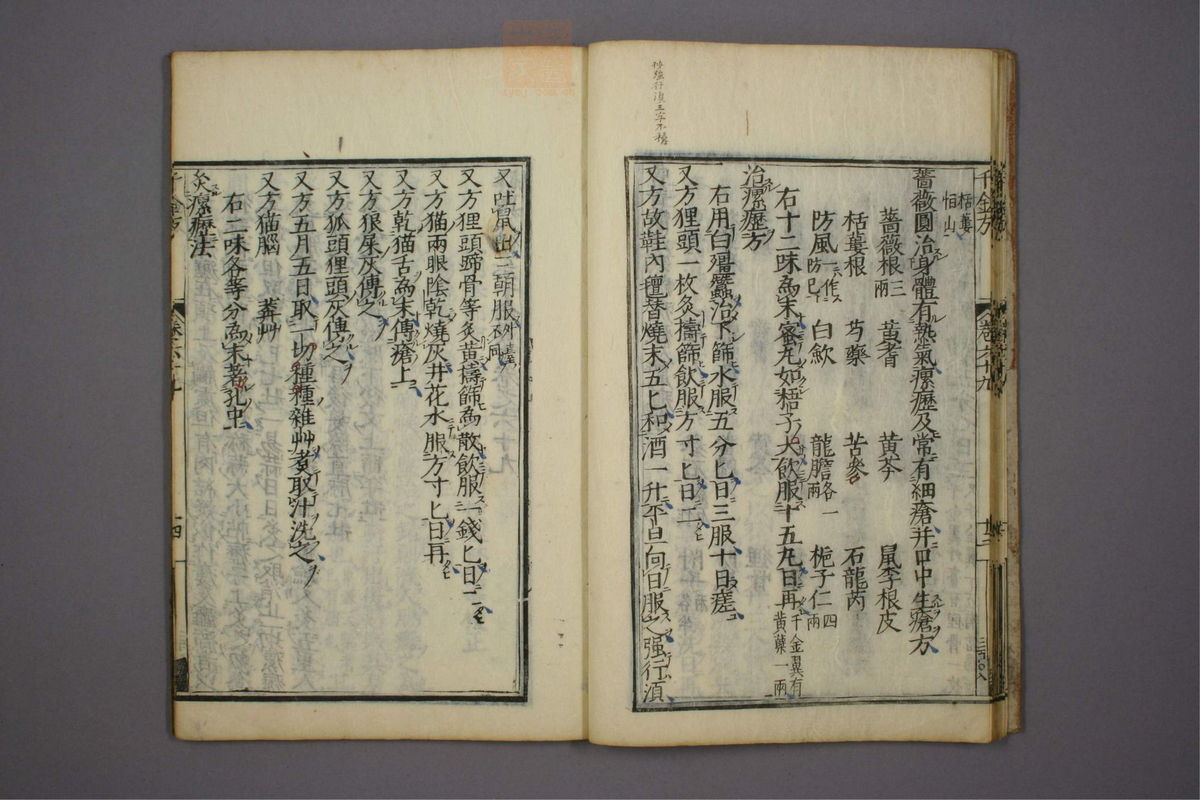 千金方 卷六十九 廿二
栝蔞
恒山
薔薇圓治身體有熱氣瘰癧及常有細瘡并口中生瘡方
薔薇根三兩 黃耆 黃芩 鼠李根皮
栝蔞根 芍藥 苦參 石龍芮
防風一作防已 白歛 龍膽各一兩 梔子仁四兩
右十二味爲末蜜丸如梧子大飲服十五丸日再千金翼有黃蘗一兩
治瘰癧方
右用白殭蠶治下篩水服五分匕日三服十日瘥
又方狸頭一枚炙擣篩飲服方寸匕日二
又方故鞋內氊替燒末五匕和酒一升平旦向日服之强行湏
强行湏三字不
又吐鼠出三朝服外臺不同
又方狸頭蹄骨等炙黃擣篩爲散飲服一錢匕日二
又方猫兩眼陰乾燒灰井花水服方寸匕日再
又方乾猫舌爲末傅瘡上
又方狼屎灰傅之
又方狐頭狸頭灰傅之
又方五月五日取一切種種雜艸煮取汁洗之
又方猫腦 莽艸
右二味各等分爲末著孔中
灸瘰癧法